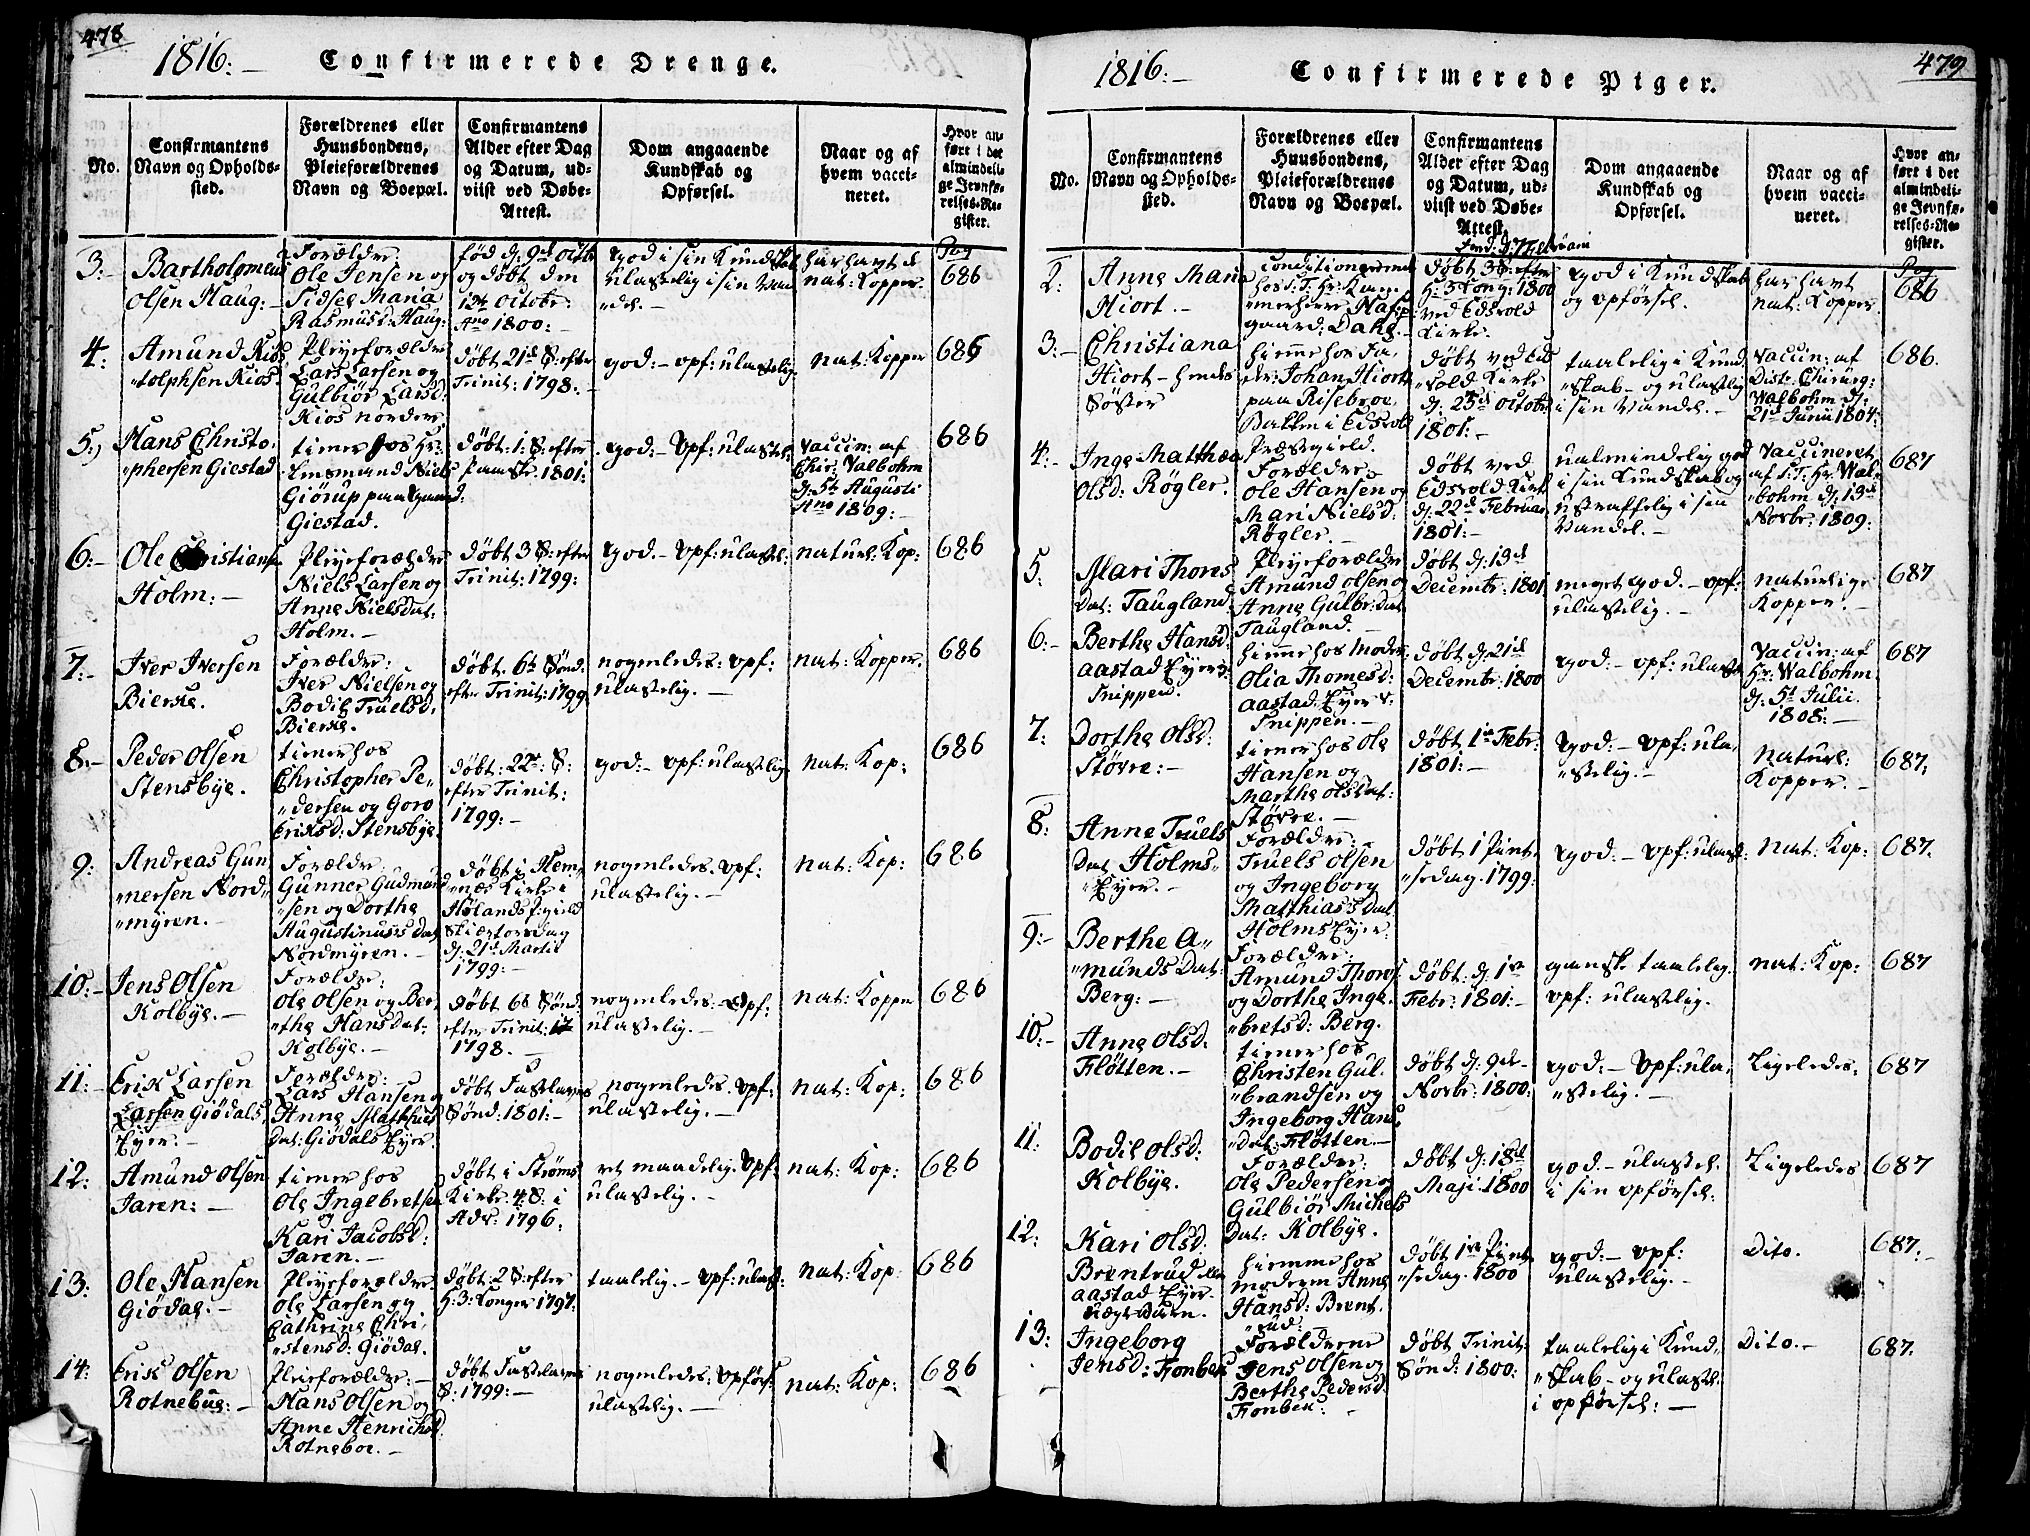 478
1816:
Confirmerede Drenge.
No.
Confirmantens
Navn og Opholds-
sted.
Forældrenes eller
Huusbondens,
Pleieforældrenes
Navn og Boepæl.
Confirmantens
Alder efter Dag
og Datum, ud-
viist ved Døbe-
Attest.
Dom angaaende
Kundskab og
Opførsel.
Naar og af
hvem vacci-
neret.
Hvor an-
ført i det
almindeli-
ge Jevnfø-
relses-Re-
gister.
Pag
3:
Bartholomeus
Olsen Haug:
Forældre:
Ole Jensen og
Sidsel Maria
Rasmusd: Haug:
fød d: 9d Octb
og døbt den
12t Octobr:
Ano 1800:
god i sin Kundskab
ulastelig i sin Van
"del.
har havt de
nat: Kopper.
686
4:
Amund Kris
"tolphsen Kios
Pleyeforældre
Lars Larsen og
Gulbiør Larsd:
Kios nordre
døbt 21d S: efter
Trinit: 1798.
god: opf: ulastelig
nat: Kopper
686
5:)
Hans Christo,
"phersen Giestad
tiener hos Hr:
Lensmand Niels
Giörup paa Gaard
Giestad.
døbt: 1: S: efter
Paaske: 1801:
god: Opf: ulastel:
Vaccin: af
Chir: Walbohm
d: 5t Augusti
Ano 1809:
686
6:
Ole Christians.
Holm:
Pleyeforældre
Niels Larsen og
Anne Nielsdat:
Holm.
døbt 3 S: efter
Trinit: 1799:
god. Opf: ulastel:
naturl: Kop:
686
7:
Iver Iversen
Bierke.
Forældre:
Iver Nielsen og
Bodil Truelsd.
Bierke.
døbt: 6t Sønd.
efter Trinit: 1799
nogenledes: opf:
ulastelig.
nat: Kopper.
686
8:
Peder Olsen
Stensbye.
tiener hos
Christopher Pe,
"dersen og Goro
Eriksd: Stensbye.
døbt: 22de S:
efter Trinit:
1799:
god: opf: ulastelig
nat: Kop:
686
9:
Andreas Gun
"nersen Nord,
"myren.
Forældre:
Gunner Gudmund
"sen og Dorthe
Augustinuss Dat
Nordmyren.
døbt i Hem,
"næs Kirke i
Hølands P:gield
Skiertorsdag
d: 21d Martii
1799:
nogenledes. opf:
ulastelig.
nat: Kop:
686
10:
Jens Olsen
Kolbye.
Forældre:
Ole Olsen og Ber,
"the Hansdat:
Kolbye.
døbt 6t Sønd.
efter Trinit:
1798.
nogenledes: Opf:
ulastelig.
nat: Kopper
686
11:
Erik Larsen
Larsen Giödals,
Eyer.
Forældre:
Lars Hansen og
Anne Matthias
Dat: Giödals Eyer.
døbt Fastelavns
Sønd: 1801:
nogenledes. opf:
ulastelig.
nat: Kop:
686
12:
Amund Olsen
Jaren:
tiener hos
Ole Ingebretsen
og
Kari Jacobsd:
Jaren.
døbt i Strøms
Kirke: 4 S: i
Adv: 1796:
ret maadelig. Opf:
ulastelig.
nat: Kop:
686
13:
Ole Hansen
Giödal:
Pleyeforældre.
Ole Larsen og
Cathrine Chri,
"stensd: Giödal.
døbt: 2 S: efter
H: 3: Konger 1797.
taalelig. opf: ulast:
nat: Kop:
686
14:
Erik Olsen
Rotneboe:
Pleieforældre:
Hans Olsen og
Anne Henrichsd:
Rotneboe.
døbt Fastelavns
S: 1799:
nogenledes: Opførs:
ulastelig.
nat: Kop:
686
479
1816:
Confirmerede Piger.
No.
Confirmantens
Navn og Opholds-
sted.
Forældrenes eller
Huusbondens,
Pleieforældrenes
Navn og Boepæl.
Confirmantens
Alder efter Dag
og Datum, ud-
viist ved Døbe-
Attest.
Dom angaaende
Kundskab og
Opførsel.
Naar og af
hvem vacci-
neret.
Hvor an-
ført i det
almindeli-
ge Jevnfø-
relses-Re-
gister.
Pag
2:
Anne Maria
Hiort.
hos S: T: Hr: Kam
merherre
gaard: Dahl.
døbt 3 S: efter
H: 3 Kong: 1800
ved Eidsvold
Kirke.
god i Kundskab
og opførsel.
har havt
nat: Kopper.
686
3:
Christiana
Hiort hendes
Søster
hiemme hos Fa,
der: Johan Hiort
paa Risebroe,
Bakken i Eidsvold
Præstgield.
døbt ved Eid
"svold Kirke
d: 25d Octobr
1801:
taalelig i Kund,
"skab og ulastlig
i sin Vandel.
Vaccin: af
Distr: Chirurg:
Walbohm d:
21d Junii 1804:
686.
4:
Inge Matthea
Olsd: Røgler.
Forældre
Ole Hansen og
Mari Nielsd:
Røgler.
døbt ved
Eidsvold Kirk
d: 22d Februar
1801:
ualmindelig god
i sin Kundskab og
ustraffelig i sin
Vandel.
Vaccineret
af S: T: Hr: Wal,
"bohm d: 13d
Novbr: 1809:
687
5:
Mari Thores
Dat: Taugland
Pleyeforældre
Amund Olsen og
Anne Gulbr: Dat
Taugland.
døbt d: 13d
Decembr: 1801
meget god. opf:
ulastelig.
naturlige
Kopper.
687
6:
Berthe Hansd:
Aastad Eyer v:
Snippen.
hiemme hos Moder:
Olia Thomesd:
Aastad: Eyer v:
Snippen.
døbt d: 21d
Decembr: 1800
god: opf: ulaste
Vaccin: af
Hr: Walbohm
d: 5t Julii
1808:
687
7:
Dorthe Olsd:
Större:
tiener hos Ole
Hansen og
Marthe Olsdat:
Större.
døbt 1te Febr:
1801:
god: opf: ula,
"stelig.
naturl:
Kopper.
687.
8:
Anne Truels
Dat Holms,
"Eyer.
Forældre:
Truels Olsen
og Ingeborg
Matthias's Dat
Holms Eyer:
døbt 1 Pint,
"sedag. 1799:
god: opf: ulast:
nat: Kop:
687.
9:
Berthe A,
"munds Dat:
Berg:
Forældre:
Amund Thores
og Dorthe Inge,
"bretsd: Berg.
døbt: d: 1te
Febr: 1801:
ganske taalelig.
opf: ulastlig.
nat: Kop:
687
10:
Anne Olsd:
Fløtten.
tiener hos
Christen Gul,
"brandsen og
Ingeborg Hans
"dat: Fløtten.
døbt d: 9de
Novbr: 1800:
god: Opf: ula,
"stelig.
Ligeledes.
687
11:
Bodil Olsd:
Kolbye.
Forældre:
Ole Pedersen og
Gulbiör Michels
Dat: Kolbye.
døbt d: 18d
Maji 1800
god. ulastel.
i sin opførsel:
Ligeledes
687
12:
Kari Olsd:
Brentrud
Aastad Eyer
hiemme hos
moderen Anne
Hansd: Brent,
"rud:
døbt 1te Pint,
"sedag. 1800
god: opf:
ulastelig.
Dito.
687.
13:
Ingeborg
Jensd: Fonbek
Forældrene
Jens Olsen og
Berthe Pedersd
Fonbek:
døbt Trinit:
Sønd: 1800:
taalelig i Kund,
"skab og ulastl.
i opførsel:
Dito.
687.